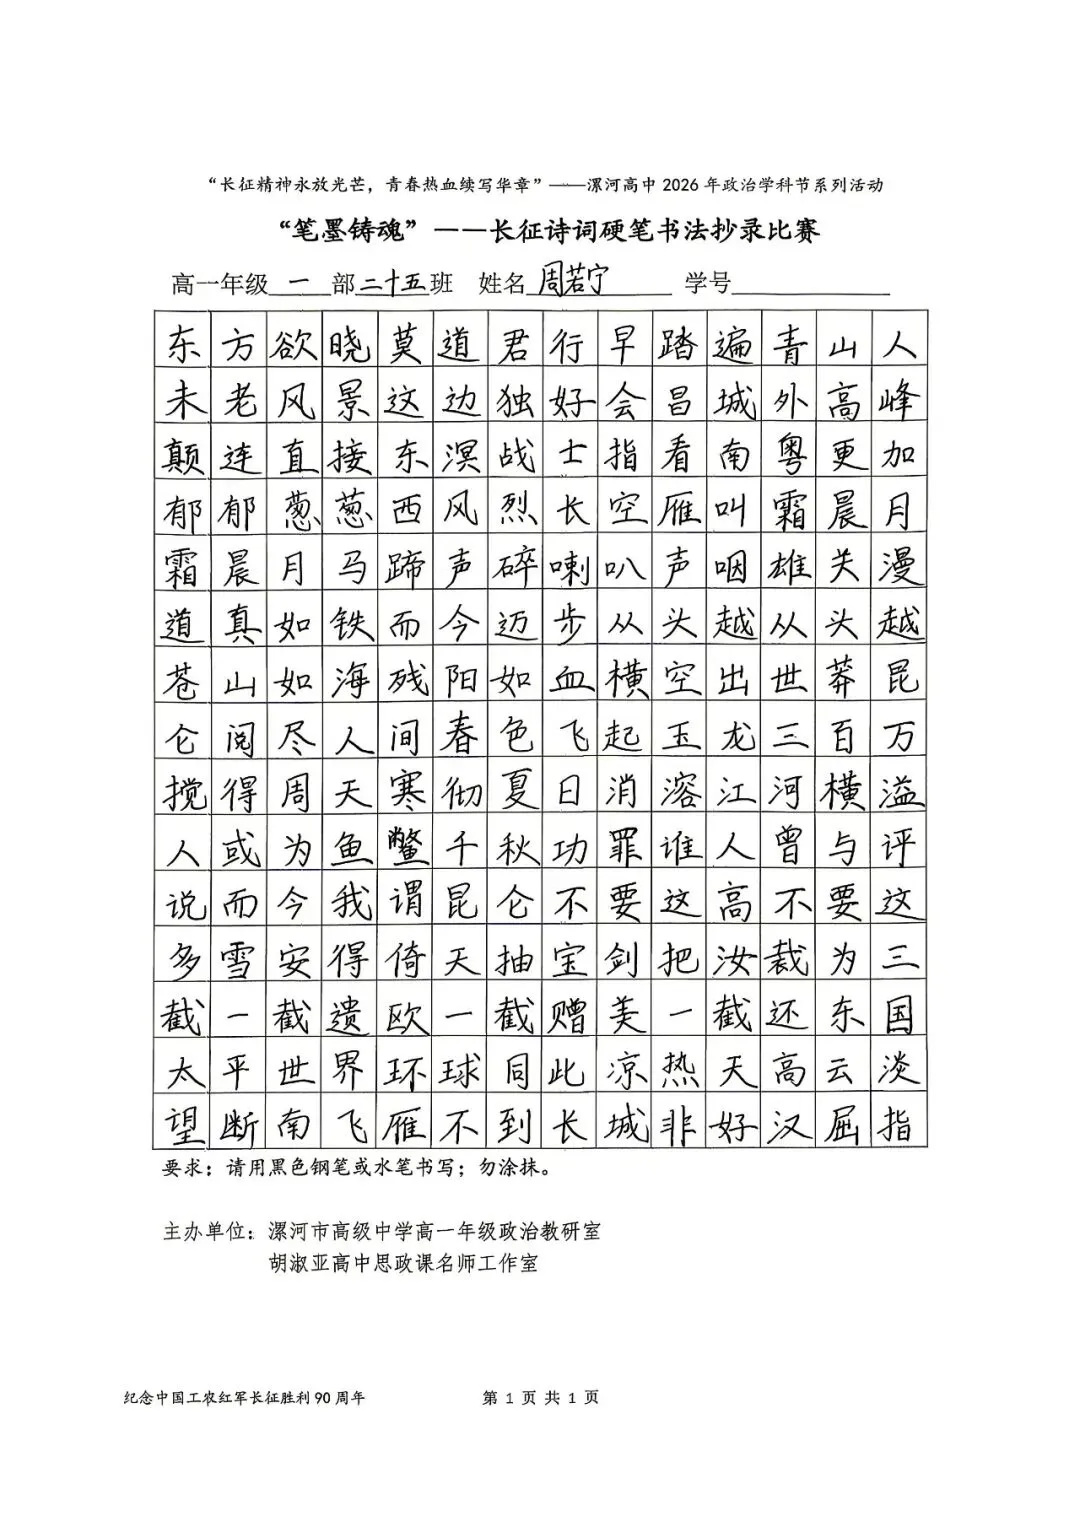 “长征精神永放光芒，青春热血续写华章”——漯河高中 2026 年政治学科节系列活动
“笔墨铸魂”——长征诗词硬笔书法抄录比赛
高一年级 一 部 二十五 班 姓名 周若宁 学号
东方欲晓莫道君行早踏遍青山人
未老风景这边独好会昌城外高峰
颠连直接东溟战士指看南粤更加
郁郁葱葱西风烈长空雁叫霜晨月
霜晨月马蹄声碎喇叭声咽雄关漫
道真如铁而今迈步从头越从头越
苍山如海残阳如血横空出世莽昆
仑阅尽人间春色飞起玉龙三百万
搅得周天寒彻夏日消溶江河横溢
人或为鱼鳖千秋功罪谁人曾与评
说而今我谓昆仑不要这高不要这
多雪安得倚天抽宝剑把汝裁为三
截一截遗欧一截赠美一截还东国
太平世界环球同此凉热天高云淡
望断南飞雁不到长城非好汉屈指
要求：请用黑色钢笔或水笔书写；勿涂抹。
主办单位：漯河市高级中学高一年级政治教研室
胡淑亚高中思政课名师工作室
纪念中国工农红军长征胜利 90 周年 第 1 页 共 1 页